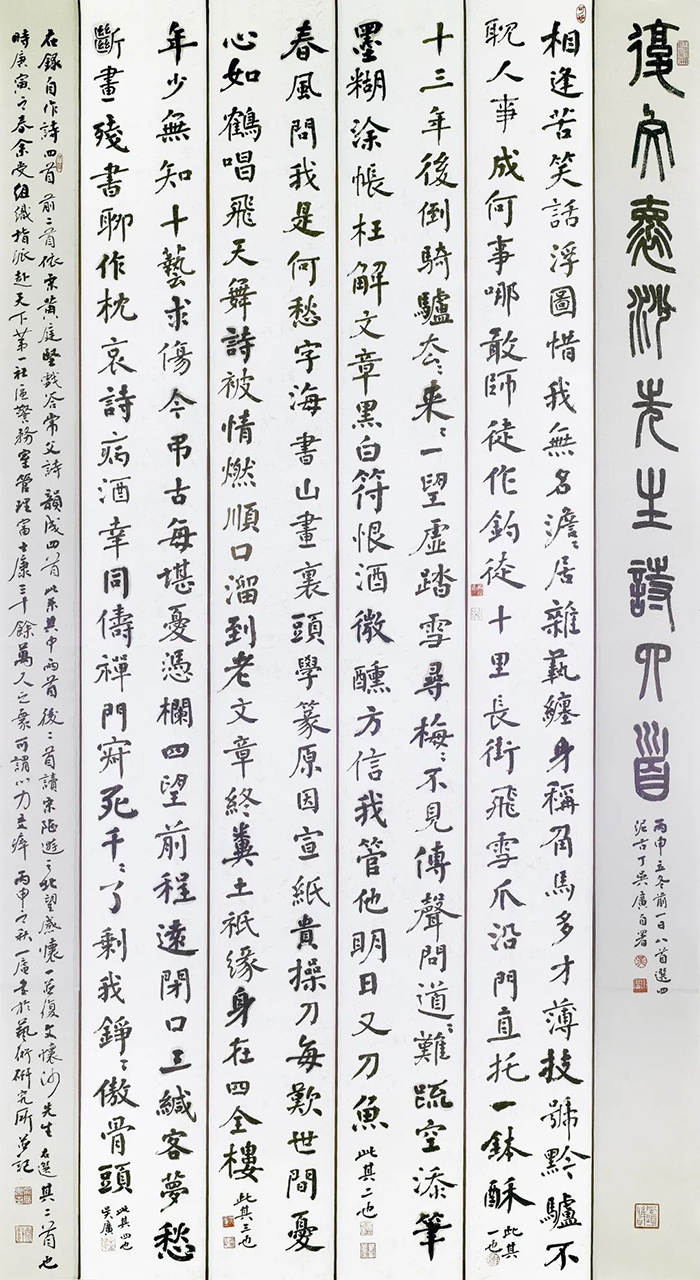 復文懷沙先生詩四首
丙申立冬前一日八首選四
泥古丁吳廣自署
相逢苦笑話浮圖惜我無名澹〻居雜藝纏身稱罔馬多才薄技號黔驢不
耽人事成何事哪敢師徒作釣徒十里長街飛雪爪沿門直托一鉢酥此其一也
十三年後倒騎驢去〻來〻一望虛踏雪尋梅〻不見傳聲問道〻難疏空添筆
墨糊塗帳枉解文章黑白符恨酒微醺方信我管他明日又刀魚此其二也
春風問我是何愁字海書山畫裏頭學篆原因宣紙貴操刀每歎世間憂
心如鶴唱飛天舞詩被情燃順口溜到老文章終糞土祇緣身在四全樓此其三也
年少無知十藝求傷今弔古每堪憂憑欄四望前程遠閉口三緘客夢愁
斷畫殘書聊作枕哀詩病酒幸同儔禪門寂死千〻了剩我錚〻傲骨頭此其四也吳廣
右錄自作詩四首前二首依宋黃庭堅戲答常父詩韻成四首此系其中兩首後二首讀宋陸遊之北望感懷一並復文懷沙先生右選其二首也
時庚寅之春余受組織指派赴天下第一社區警務室管理富士康三十餘萬人之眾可謂心力交瘁丙申之秋一廣書於藝術研究所並記